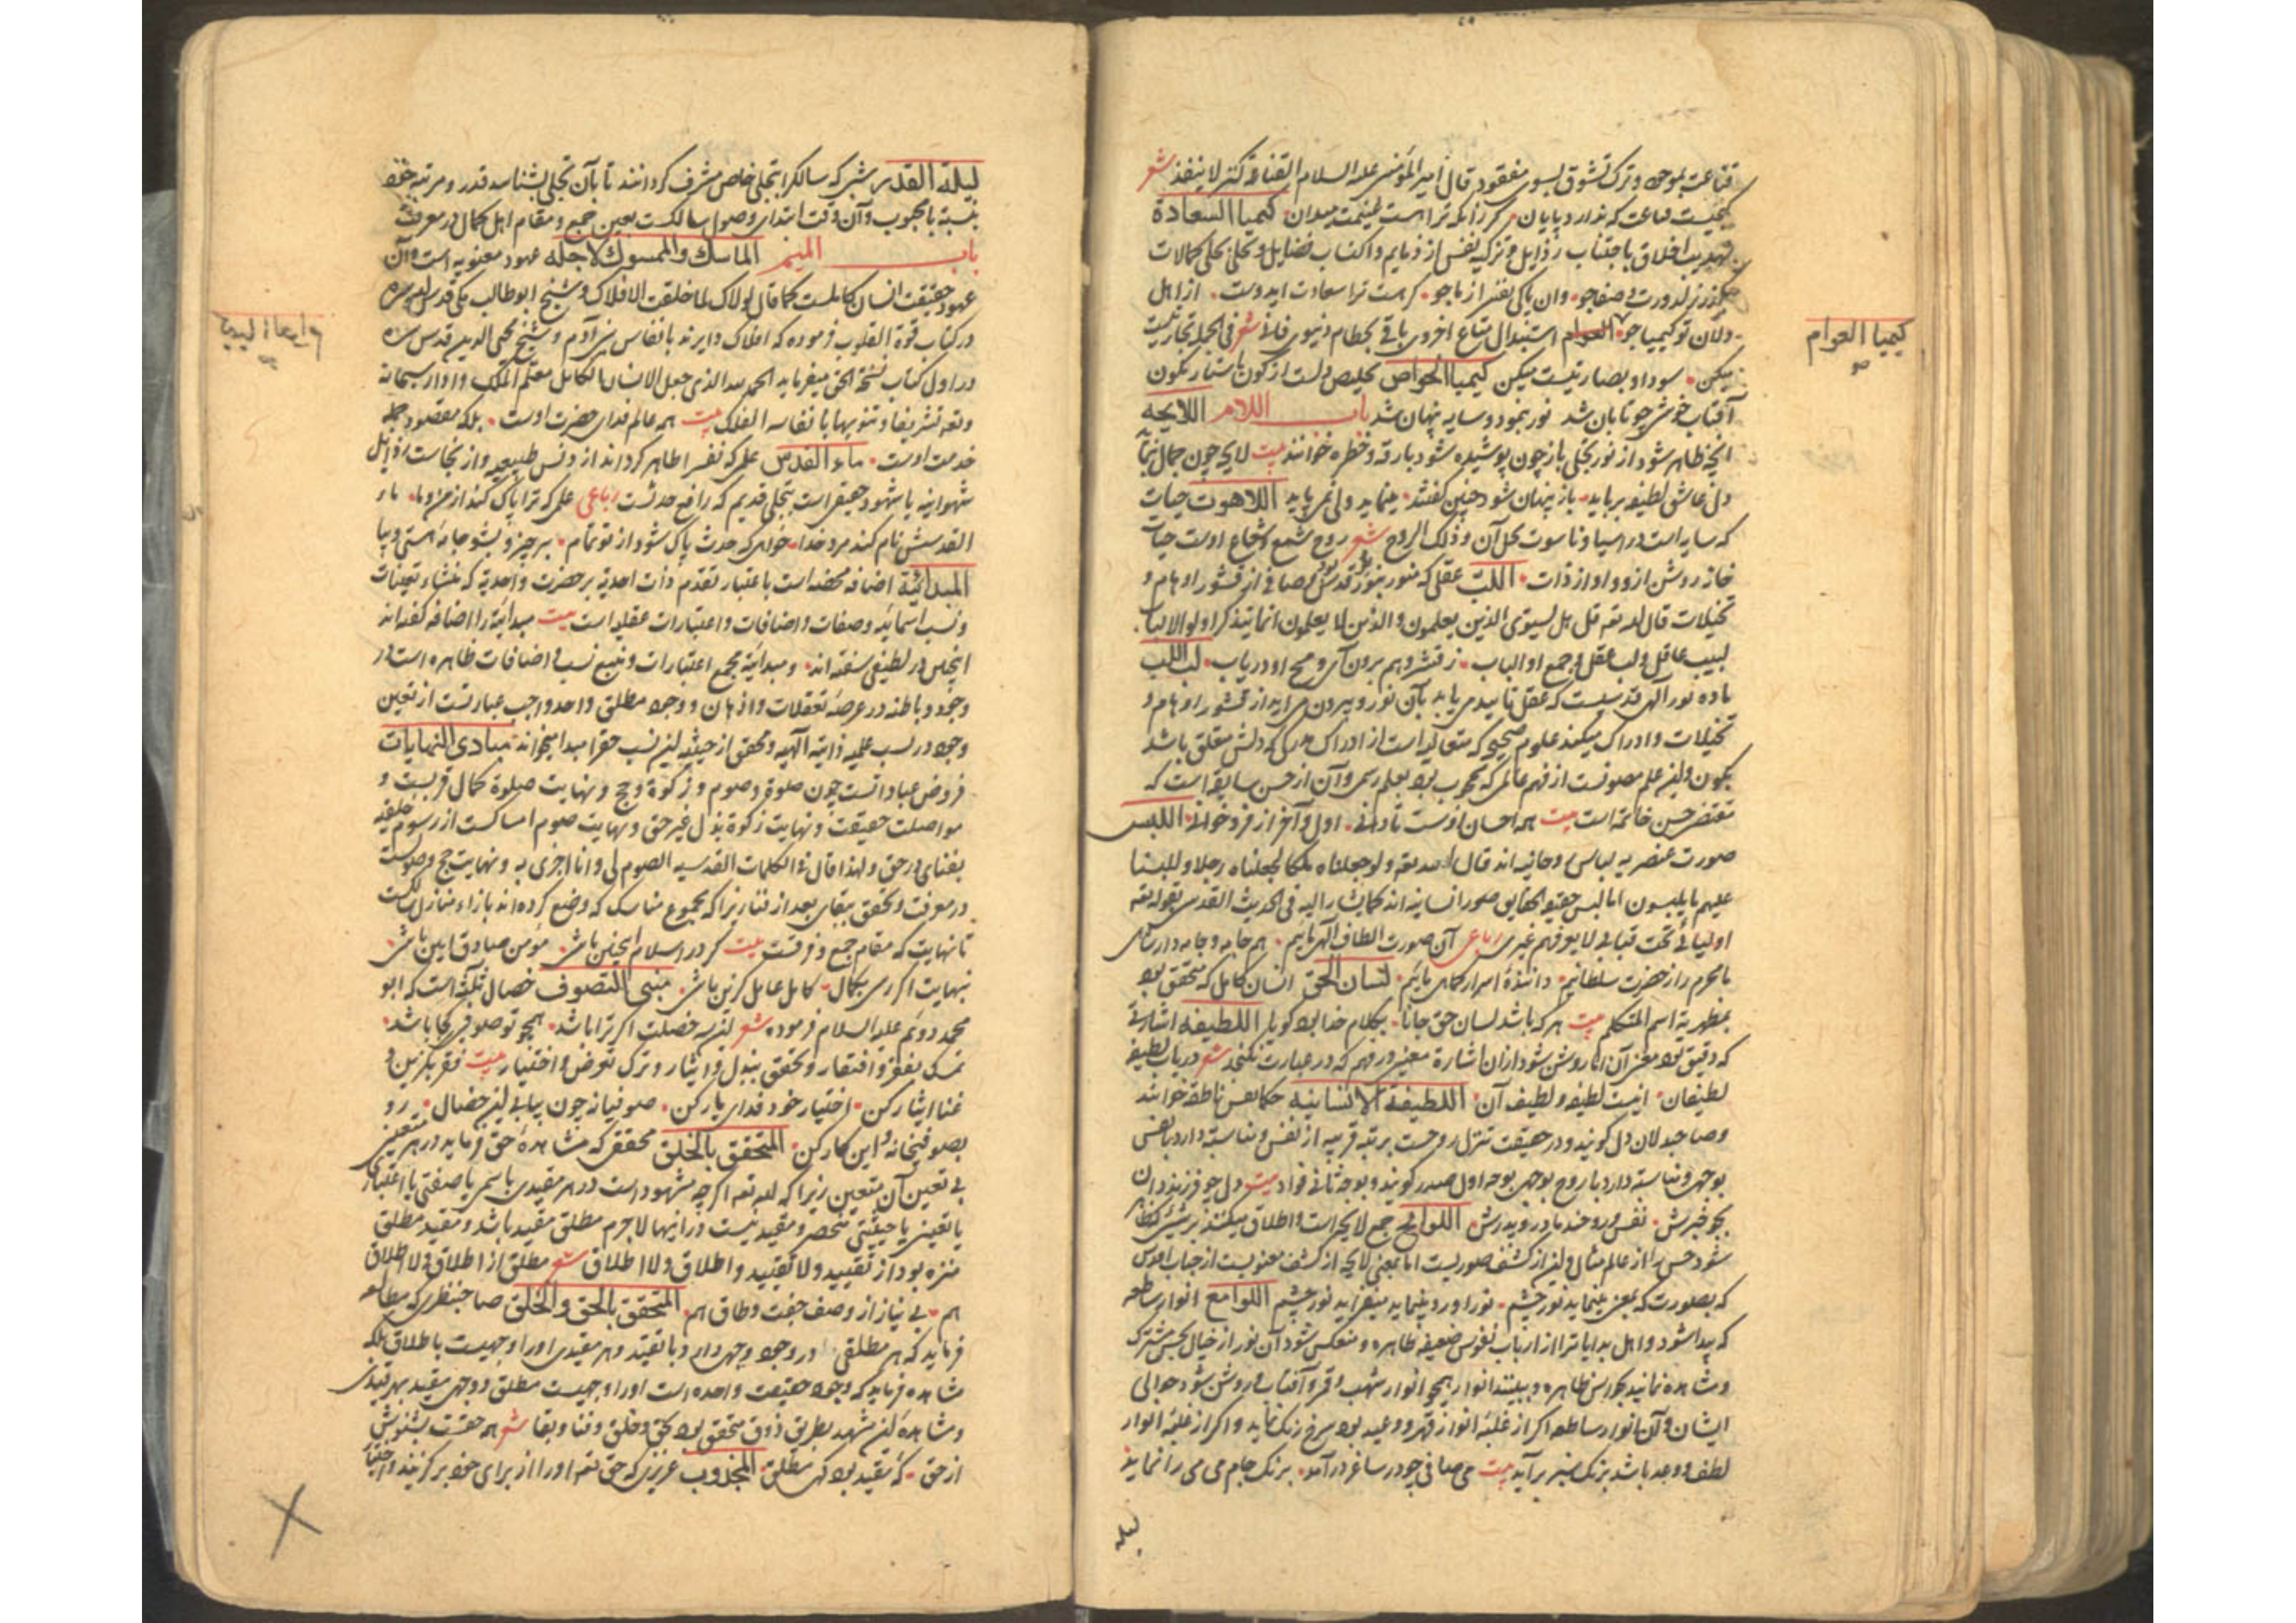 قناعت بموجود و ترک تشوق بسوی مفقود قال امیر المؤمنین علیه السلام القناعة کنز لا ینفد شعر
گنجیست قناعت که ندارد پایان گر زانکه تراست غنیمت میدان کیمیا السعادة
تهذیب اخلاق باجتناب رذایل و تزکیه نفس از ذمایم و اکتساب فضایل و تحلی بحلی کمالات
کیمیا العوام
دلان تو کیمیا جو العوام استبدال متاع اخروی باقی بحطام دنیوی فانی شعر
کیمیا الخواص تخلیص دلست از کون
آفتاب خوش چو تابان شد نور بنمود و سایه پنهان شد باب اللام اللایحه
انچه ظاهر شود از نور تجلی باز چون پوشیده شود بارقه و خطره خوانند بیت لایحه چون جمال بنماید
دل عاشق لطیفه برباید باز پنهان شود چنین گفتند مینماید ولی نمی پاید اللاهوت حیات
که ساریه است در اشیا و ناسوت محل آن و ذلک الروح شعر روح شمع و شعاع اوست حیات
خانه روشن ازو و او از ذات اللب عقلی که منور بنور قدس و صافی از قشور اوهام و
تخیلات قال الله تعه قل هل یستوی الذین یعلمون والذین لا یعلمون انما یتذکر اولوا الالباب
لبیب عاقل و لب عقل و جمع او الباب ز قشر وهم برون آی و مخ او دریاب لب اللب
ماده نور الهی قدسیست که عقل تایید می یابد بآن نور و بیرون می اید از قشور اوهام و
تخیلات و ادراک میکند علوم صحیح که متعالیه است از ادراک هر که دلش متعلق باشد
بکون و این علم مصونست از فهم عالمی که محجوب بود بعلم رسمی و آن از حسن سابقه است که
مقتضی حسن خاتمه است بیت همه احسان اوست تا دانی اول و آخر از فرو خوانی اللبس
صورت عنصریه لباس روحانیه اند قال الله تعه ولو جعلناه ملکا لجعلناه رجلا وللبسنا
علیهم ما یلبسون اما لبس حقیقه الحقایق صور انسانیه اند کما یشار الیه فی الحدیث القدسی بقوله تعه
اولیائی تحت قبابی لا یعرفهم غیری رباعی آن صورت الطاف الهی ماییم هم جامه و جامه دار
ما محرم راز حضرت سلطانیم دانندۀ اسرار کماهی مائیم لسان الحق انسان کامل که متحقق بود
بمظهریة اسم المتکلم بیت هر که باشد لسان حق جانا بکلام خدا بود گویا اللطیفه اشارتی
که دقیق بود معنی آن اما روشن شود ازان اشارة معنیی در فهم که در عبارت نگنجد شعر دریاب لطیفه
لطیفان اینست لطیفه و لطیف آن اللطیفة الانسانیه حکما نفس ناطقه خوانند
و صاحبدلان دل گویند و در حقیقت تنزل روحست بر تبه قریبه از نفس و مناسبة دارد با نفس
بوجهی و مناسبة دارد با روح بوجهی بوجه اول صدر گویند و بوجه ثانی فواد بیت دل چو فرزند دان
بجو خبرش نفس و روحند مادر و پدرش اللوایح جمع لایحه است و اطلاق میکنند
شود حس را از عالم مثال و این از کشف صوریست اما بمعنی لایحه از کشف معنویست از جناب اقدس
که بصورت که بمعنی مینماید نور چشم نور او رو مینماید میفزاید نور چشم اللوامع انوار ساطعه
که پیدا شود و اهل بدایات را از ارباب نفوس ضعیفه ظاهره و منعکس شود آن نور از خیال بحس مشترک
و مشاهده نمایند بحواس ظاهره و ببینند انوار همچو انوار شهب و قمر و آفتاب و روشن شود حوالی
ایشان و آن انوار ساطعه اگر از غلبۀ انوار قهر و وعید بود سرخ رنگ نماید و اگر از غلبۀ انوار
لطف و وعد باشد برنگ سبز برآید بیت می صافی چو در ساغر درآمد برنگ جام می می را نماید
لیله
لیلة القدر شبی که سالک را بتجلی خاص مشرف گردانند تا بآن تجلی بشناسد قدر و مرتبه خود
بنسبة با محبوب و آن وقت ابتدای وصول سالکست بعین جمع و مقام اهل کمال در معرفت
باب المیم الماسک والممسوک لاجله عهود معنویه است و آن
عهود حقیقت انسان کاملست کما قال لولاک لما خلقت الافلاک و شیخ ابو طالب مکی قدس الله سره
در کتاب قوة القلوب فرموده که افلاک دایرند بانفاس بنی آدم و شیخ محی الدین قدس سره
در اول کتاب نسخة الحق میفرماید الحمد لله الذی جعل الانسان الکامل معلم الملک و ادار سبحانه
وتعه تشریفا و تنویها بانفاسه الفلک بیت همه عالم فدای حضرت اوست بلکه مقصود جمله
خدمت اوست ماء القدس علمی که نفس را طاهر گرداند از دنس طبیعیه و از نجاست رذایل
شهوانیه یا شهود حقیقی است بتجلی قدیم که رافع حدثست رباعی علمی که ترا پاک کند از من و ما ماء
القدسش نام کند مرد خدا خواهی که حدث پاک شود از تو تمام برخیز و بشو جامه هستی و بیا
المبدائیة اضافه محضه است باعتبار تقدم ذات احدیة بر حضرت واحدیة که منشاء تعینات
و نسب اسمائیه و صفات و اضافات و اعتبارات عقلیه است بیت مبدائیة را اضافه گفته اند
اینچنین در لطیفی سفته اند و مبدائیة مجمع اعتبارات و منبع نسب و اضافات ظاهره است در
وجود و باطنه در عرصۀ تعقلات و اذهان و وجود مطلق واحد واجب عبارتست از تعین
وجود در نسب علمیه ذاتیه الهیه و محقق از حیثیة این نسب حق را مبدا میخواند مبادی النهایات
فروض عباداتست چون صلوة و صوم و زکوة و حج و نهایت صلوة کمال قربست و
مواصلت حقیقت و نهایت زکوة بذل غیر حق و نهایت صوم امساکست از رسوم خلقیه
بفنای در حق و لهذا قال فی الکلمات القدسیه الصوم لی و انا اجزی به و نهایت حج وصولست
در معرفت و تحقق ببقای بعد از فنا زیرا که مجموع مناسک که وضع کرده اند بازاء منازل سالکست
تا نهایت که مقام جمع و فرقست بیت گر در اسلام اینچنین باشی مؤمن صادق امین باشی
بنهایت اگر رسی بکمال کامل عامل گزین باشی مبنی التصوف خصال ثلثه است که ابو
محمد رویم علیه السلام فرموده شعر این سه خصلت اگر ترا باشد همچو تو صوفیی کجا باشد
تمسک بفقر و افتقار و تحقق ببذل و ایثار و ترک تعرض و اختیار بیت فقر بگزین و
غنا ایثار کن اختیار خود فدای یار کن صوفیانه چون بیابی این خصال رو
بصوفیخانه و این کار کن المتحقق بالحق محققی که مشاهدۀ حق فرماید در هر متعینی
بی تعین آن متعین زیرا که الله تعه اگرچه مشهود است در هر مقیدی باسمی یا صفتی یا اعتباری
یا تعینی یا حیثیتی منحصر و مقید نیست در اینها لاجرم مطلق مقید باشد و مقید مطلق
منزه بود از تقیید و لا تقیید و اطلاق و لا اطلاق شعر مطلق از اطلاق و لا اطلاق
هم بی نیاز از وصف جفت و طاق هم المتحقق بالحق والخلق صاحبنظری که مطالعه
فرماید که هر مطلقی در وجود وجهی دارد با تقید و هر مقیدی را وجهیست باطلاق بلکه
مشاهده فرماید که وجود حقیقت واحده است او را وجهیست مطلق و وجهی مقید بهر قیدی
و مشاهدۀ این مشهد بطریق ذوق متحقق بود بحق و خلق و فنا و بقا شعر همه حقست بشنوش
از حق که مقید بود گهی مطلق المجذوب عزیزی که حق تعه او را از برای خود برگزیند و اختیار